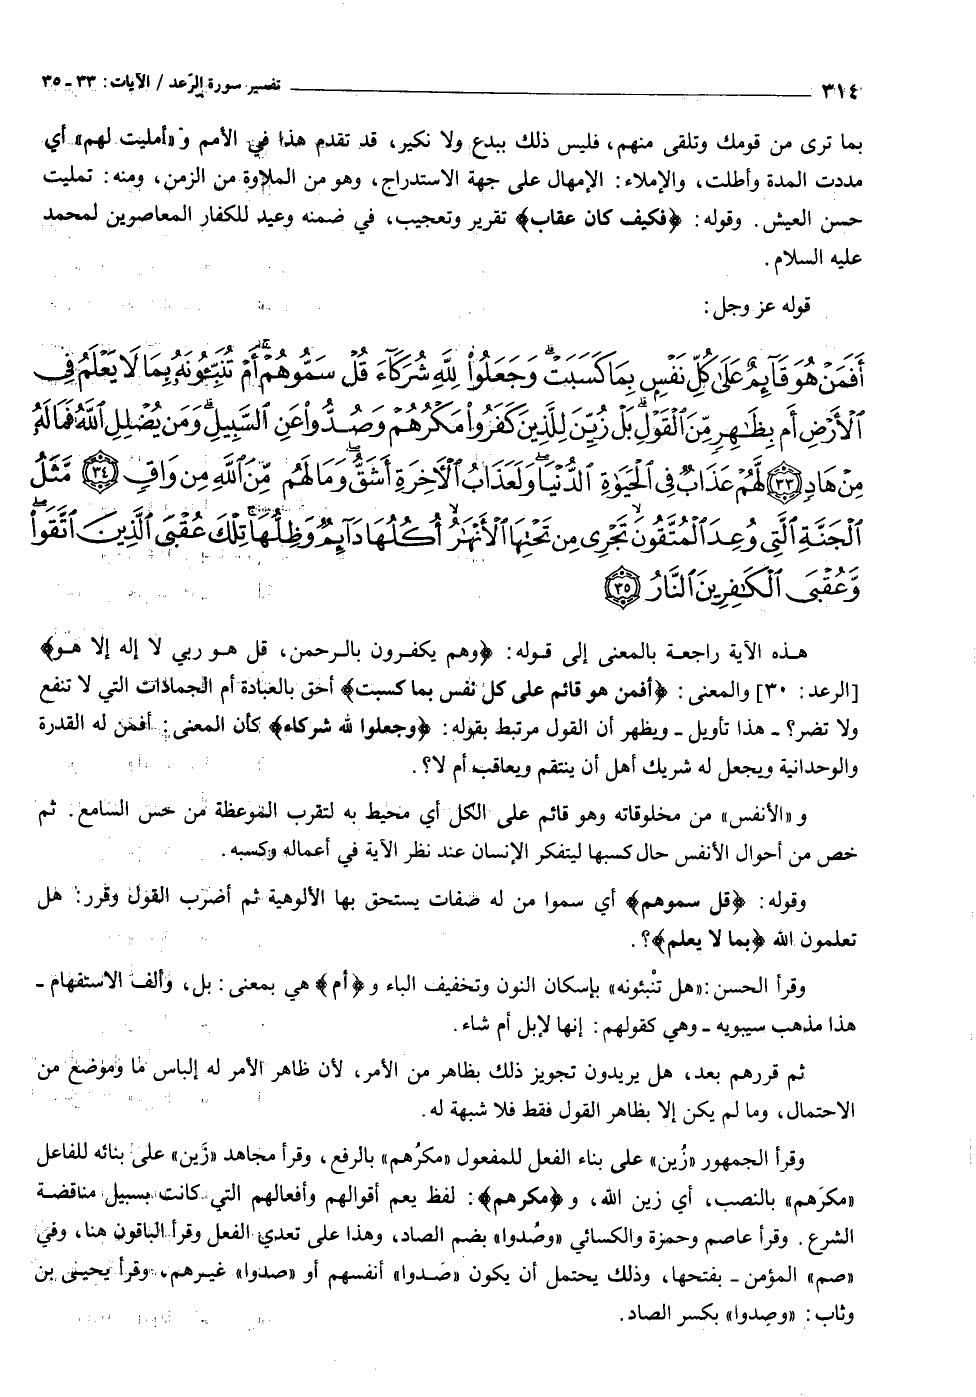 ٣١٤ تفسير سورة الرّعد / الآيات: ٣٣ ـ ٣٥
بما ترى من قومك وتلقى منهم، فليس ذلك ببدع ولا نكير، قد تقدم هذا في الأمم و«أمليت لهم» أي
مددت المدة وأطلت، والإملاء: الإمهال على جهة الاستدراج، وهو من الملاوة من الزمن، ومنه: تمليت
حسن العيش. وقوله: ﴿فكيف كان عقاب﴾ تقرير وتعجيب، في ضمنه وعيد للكفار المعاصرين لمحمد
عليه السلام.
قوله عز وجل:
أَفَمَنْ هُوَ قَآئِمٌ عَلَىٰ كُلِّ نَفْسٍ بِمَا كَسَبَتْ ۗ وَجَعَلُوا۟ لِلَّهِ شُرَكَآءَ قُلْ سَمُّوهُمْ ۚ أَمْ تُنَبِّـُٔونَهُۥ بِمَا لَا يَعْلَمُ فِى
ٱلْأَرْضِ أَم بِظَـٰهِرٍ مِّنَ ٱلْقَوْلِ ۗ بَلْ زُيِّنَ لِلَّذِينَ كَفَرُوا۟ مَكْرُهُمْ وَصُدُّوا۟ عَنِ ٱلسَّبِيلِ ۗ وَمَن يُضْلِلِ ٱللَّهُ فَمَا لَهُۥ
مِنْ هَادٍ ٣٣ لَّهُمْ عَذَابٌ فِى ٱلْحَيَوٰةِ ٱلدُّنْيَا ۖ وَلَعَذَابُ ٱلْـَٔاخِرَةِ أَشَقُّ ۖ وَمَا لَهُم مِّنَ ٱللَّهِ مِن وَاقٍ ٣٤ مَّثَلُ
ٱلْجَنَّةِ ٱلَّتِى وُعِدَ ٱلْمُتَّقُونَ ۖ تَجْرِى مِن تَحْتِهَا ٱلْأَنْهَـٰرُ ۖ أُكُلُهَا دَآئِمٌ وَظِلُّهَا ۚ تِلْكَ عُقْبَى ٱلَّذِينَ ٱتَّقَوا۟ ۖ
وَّعُقْبَى ٱلْكَـٰفِرِينَ ٱلنَّارُ ٣٥
هذه الآية راجعة بالمعنى إلى قوله: ﴿وهم يكفرون بالرحمن، قل هو ربي لا إله إلا هو﴾
[الرعد: ٣٠] والمعنى: ﴿أفمن هو قائم على كل نفس بما كسبت﴾ أحق بالعبادة أم الجمادات التي لا تنفع
ولا تضر؟ ـ هذا تأويل ـ ويظهر أن القول مرتبط بقوله: ﴿وجعلوا لله شركاء﴾ كأن المعنى: أفمن له القدرة
والوحدانية ويجعل له شريك أهل أن ينتقم ويعاقب أم لا؟.
و «الأنفس» من مخلوقاته وهو قائم على الكل أي محيط به لتقرب الموعظة من حس السامع. ثم
خص من أحوال الأنفس حال كسبها ليتفكر الإنسان عند نظر الآية في أعماله وكسبه.
وقوله: ﴿قل سموهم﴾ أي سموا من له صفات يستحق بها الألوهية ثم أضرب القول وقرر: هل
تعلمون الله ﴿بما لا يعلم﴾؟.
وقرأ الحسن: «هل تنْبئونه» بإسكان النون وتخفيف الباء و ﴿أم﴾ هي بمعنى: بل، وألف الاستفهام ـ
هذا مذهب سيبويه ـ وهي كقولهم: إنها لإبل أم شاء.
ثم قررهم بعد، هل يريدون تجويز ذلك بظاهر من الأمر، لأن ظاهر الأمر له إلباس ما وموضع من
الاحتمال، وما لم يكن إلا بظاهر القول فقط فلا شبهة له.
وقرأ الجمهور «زُين» على بناء الفعل للمفعول «مكرُهم» بالرفع، وقرأ مجاهد «زَين» على بنائه للفاعل
«مكرَهم» بالنصب، أي زين الله، و ﴿مكرهم﴾: لفظ يعم أقوالهم وأفعالهم التي كانت بسبيل مناقضة
الشرع. وقرأ عاصم وحمزة والكسائي «وصُدوا» بضم الصاد، وهذا على تعدي الفعل وقرأ الباقون هنا، وفي
«صم» المؤمن ـ بفتحها، وذلك يحتمل أن يكون «صَدوا» أنفسهم أو «صدوا» غيرهم، وقرأ يحيى بن
وثاب: «وصِدوا» بكسر الصاد.